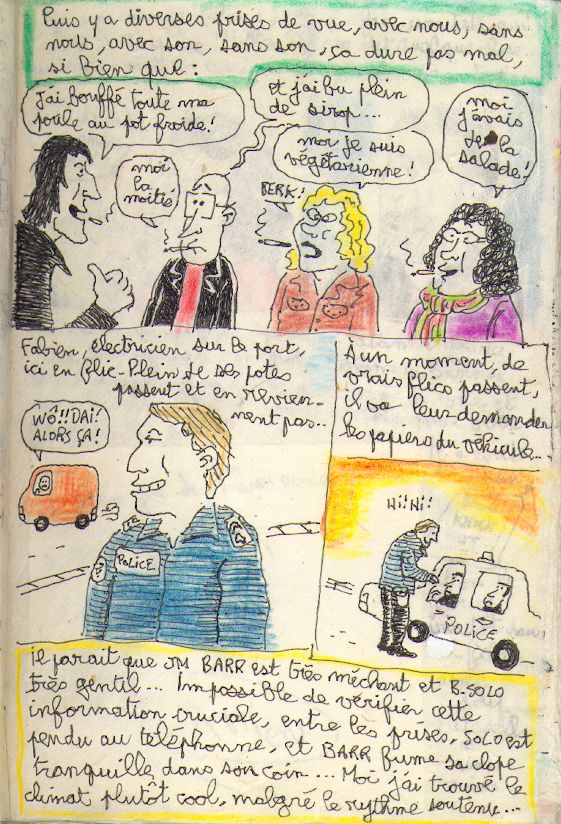 Puis y a diverses prises de vue, avec nous, sans
nous, avec son, sans son, ça dure pas mal,
si bien que :
J'ai bouffé toute ma
poule au pot froide !
et j'ai bu plein
de sirop...
moi
la
moitié !
BERK !
moi je suis
végétarienne !
moi
j'avais
de la
salade !
Fabien, electricien sur le port,
ici en flic. Plein de ses potes
passent et en revien-
nent pas..
WÔ!! DAI!
ALORS ÇA !
POLICE
À un moment, de
vrais flics passent,
il va leur demander
les papiers du véhicule...
HI! HI!
POLICE
il parait que JM BARR est très méchant et B. SOLO
très gentil... Impossible de vérifier cette
information cruciale, entre les prises, SOLO est
pendu au téléphonne, et BARR fume sa clope
tranquille dans son coin... Moi j'ai trouvé le
climat plutôt cool, malgré le rythme soutenu...